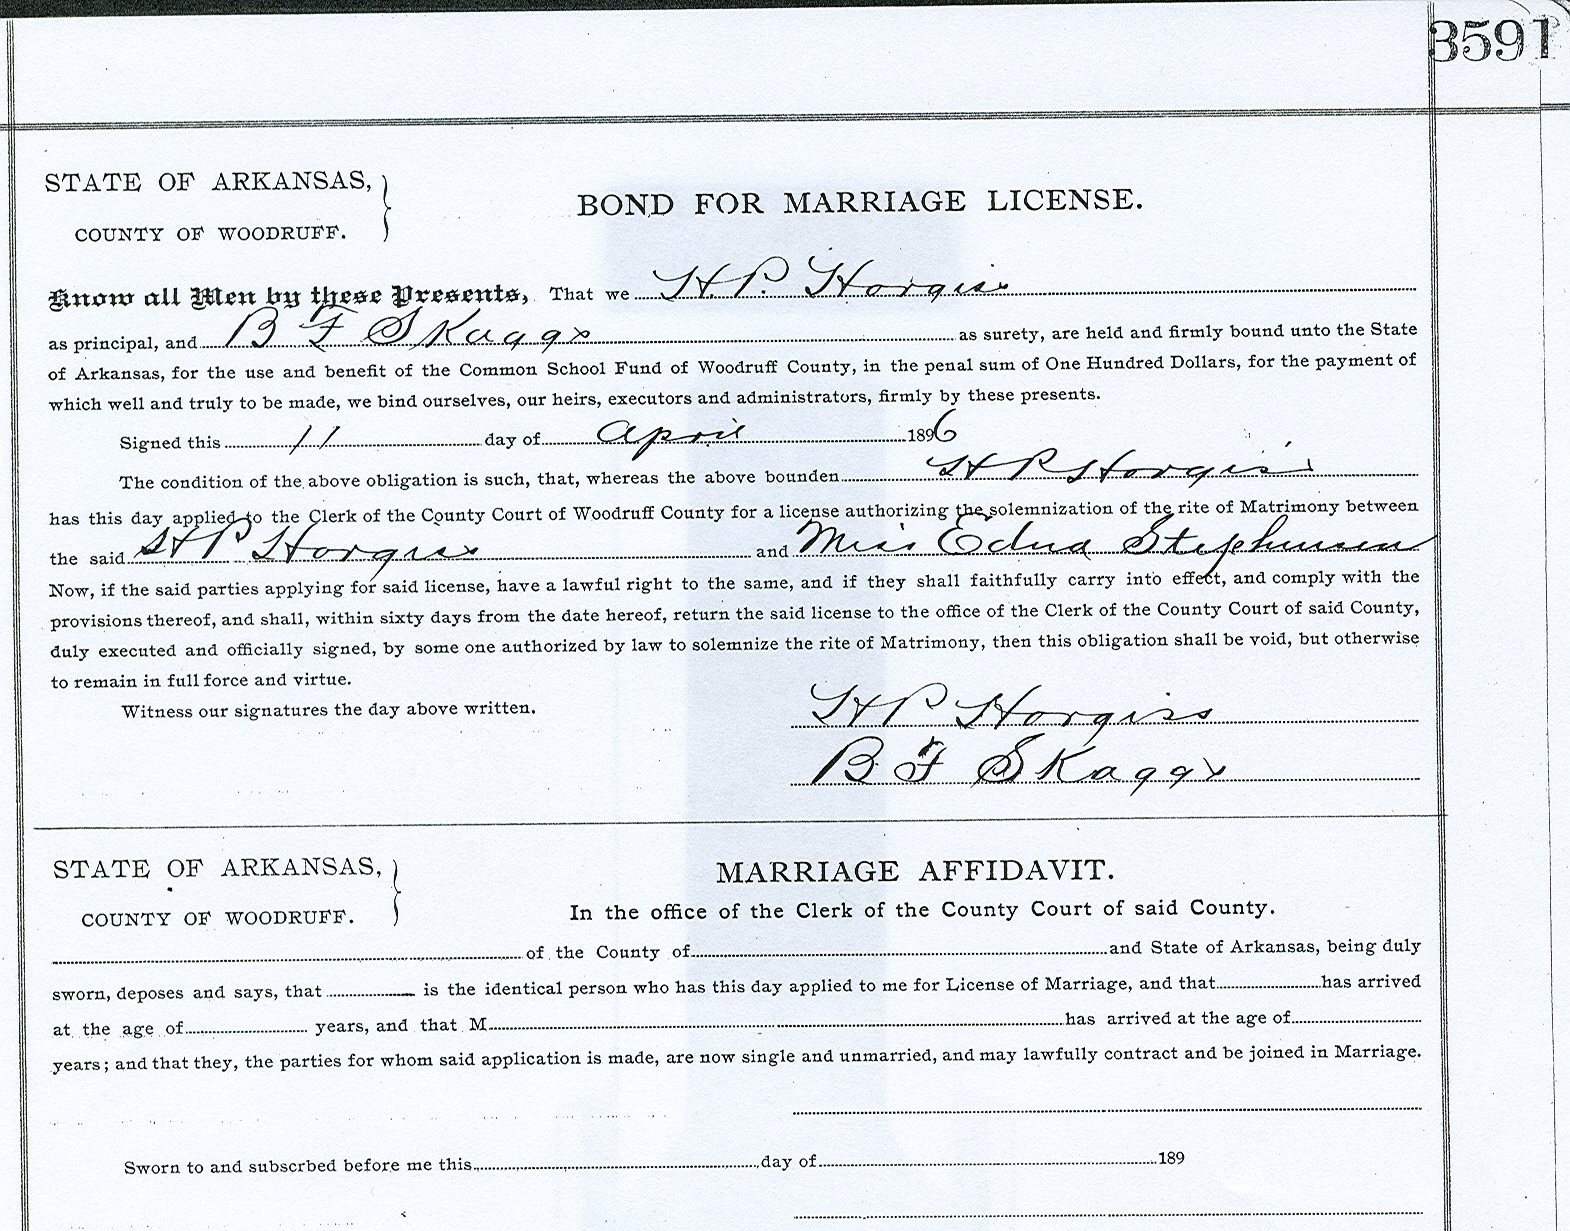 3591
STATE OF ARKANSAS,
COUNTY OF WOODRUFF.
BOND FOR MARRIAGE LICENSE.
Know all Men by these Presents, That we H. P. Horgiss
as principal, and B F Skaggs as surety, are held and firmly bound unto the State
of Arkansas, for the use and benefit of the Common School Fund of Woodruff County, in the penal sum of One Hundred Dollars, for the payment of
which well and truly to be made, we bind ourselves, our heirs, executors and administrators, firmly by these presents.
Signed this 11 day of April 1896
The condition of the above obligation is such, that, whereas the above bounden H P Horgiss
has this day applied to the Clerk of the County Court of Woodruff County for a license authorizing the solemnization of the rite of Matrimony between
the said H P Horgiss and Miss Edna Stephenson
Now, if the said parties applying for said license, have a lawful right to the same, and if they shall faithfully carry into effect, and comply with the
provisions thereof, and shall, within sixty days from the date hereof, return the said license to the office of the Clerk of the County Court of said County,
duly executed and officially signed, by some one authorized by law to solemnize the rite of Matrimony, then this obligation shall be void, but otherwise
to remain in full force and virtue.
Witness our signatures the day above written.
H P Horgiss
B F Skaggs
STATE OF ARKANSAS,
COUNTY OF WOODRUFF.
MARRIAGE AFFIDAVIT.
In the office of the Clerk of the County Court of said County.
of the County of and State of Arkansas, being duly
sworn, deposes and says, that is the identical person who has this day applied to me for License of Marriage, and that has arrived
at the age of years, and that M has arrived at the age of
years; and that they, the parties for whom said application is made, are now single and unmarried, and may lawfully contract and be joined in Marriage.
Sworn to and subscrbed before me this day of 189